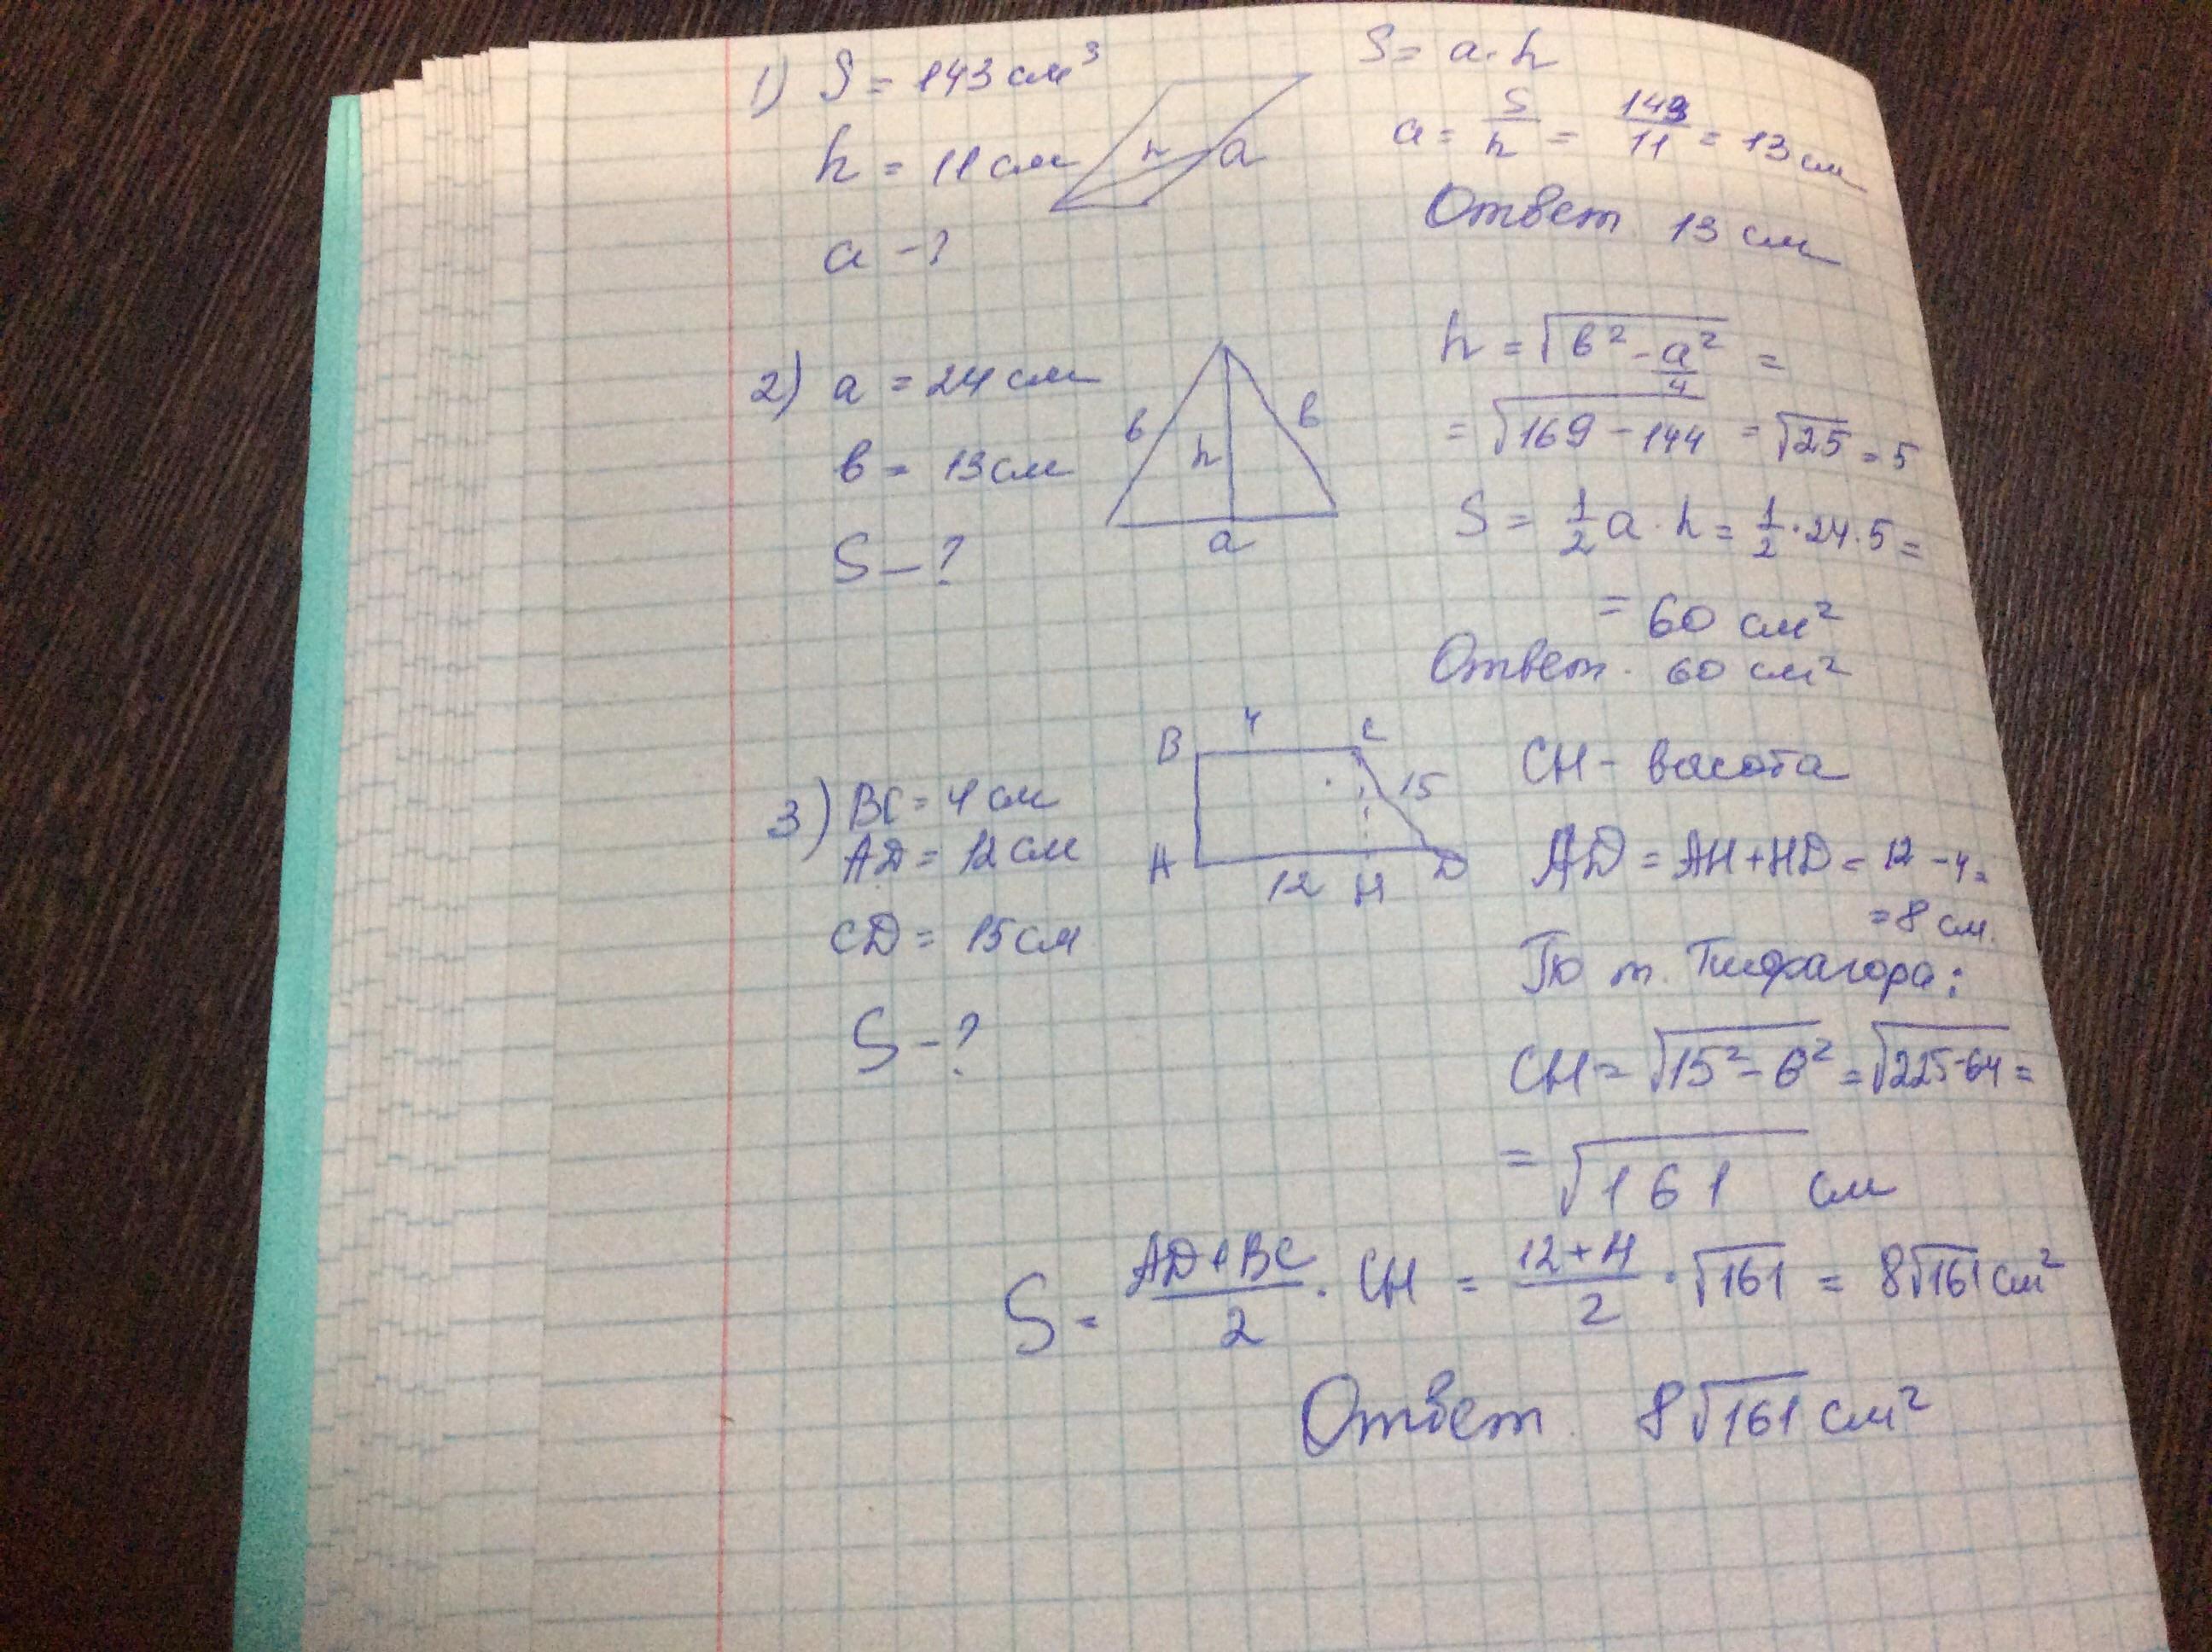 1) S = 143 см³
h = 11 см
a - ?
h a
S = a · h
a = S/h = 143/11 = 13 см
Ответ. 13 см
2) a = 24 см
в = 13 см
S - ?
в в
h
a
h = √(в² - a²/4) =
= √(169 - 144) = √25 = 5
S = 1/2 a · h = 1/2 · 24 · 5 =
= 60 см²
Ответ. 60 см²
3) BC = 4 см
AD = 12 см
CD = 15 см
S - ?
B 4 C
15
A 12 H D
CH - высота
AD = AH + HD = 12 - 4 =
= 8 см.
По т. Пифагора:
CH = √(15² - 8²) = √(225-64) =
= √161 см
S = (AD + BC)/2 · CH = (12 + 4)/2 · √161 = 8√161 см²
Ответ. 8√161 см²